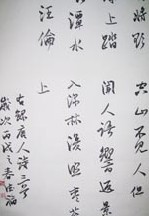 將欲
上踏
潭水
汪倫
空山不見人但
聞人語響返景
入深林復照青苔
上
右錄唐人詩二首
歲次丙戌之春